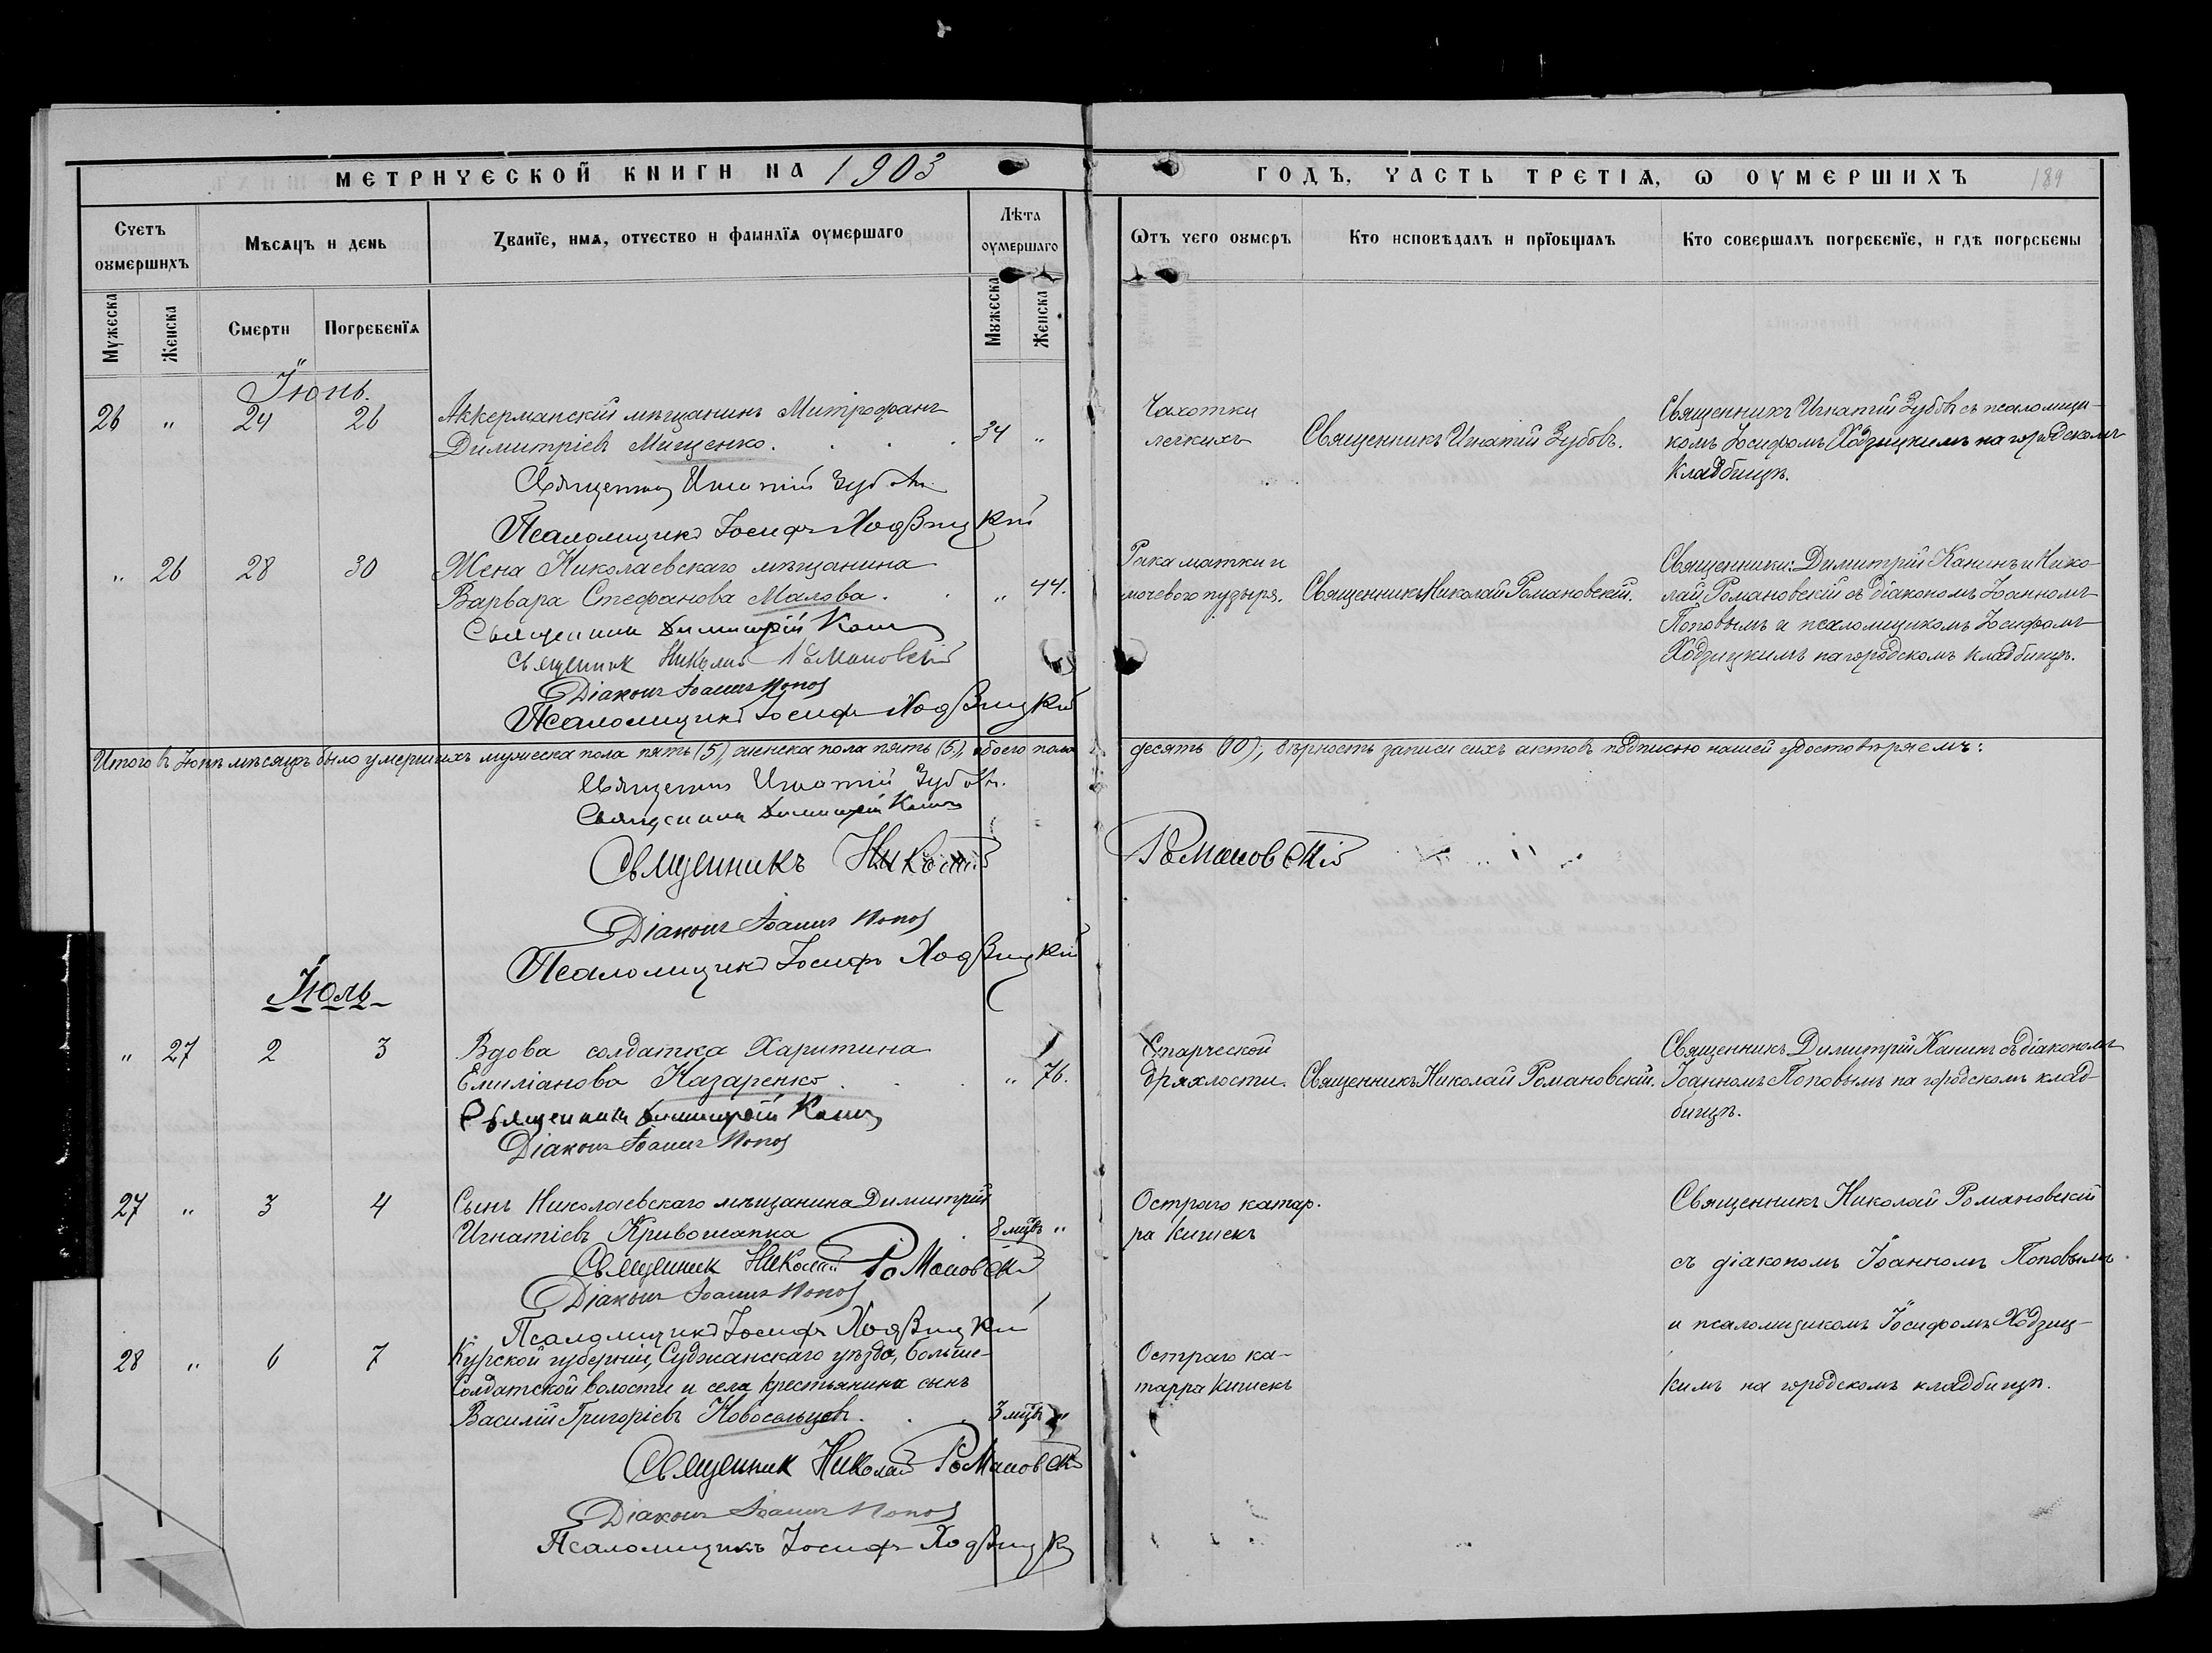 МЕТРИЧЕСКОЙ КНИГИ НА 1903
ГОДЪ, ЧАСТЬ ТРЕТІѦ, Ѡ ОУМЕРШИХЪ 189
Счетъ оумершихъ
Мѣсѧцъ и день
Званїе, имѧ, отчество и фамилїѧ оумершаго
Лѣта оумершаго
Ѿтъ чего оумеръ
Кто исповѣдалъ и прїобщалъ
Кто совершалъ погребенїе, и гдѣ погребены
Мужеска
Женска
Смерти
Погребенїѧ
Мужеска
Женска
Іюнь.
26 " 24 26 Аккерманскій мѣщанинъ Митрофанъ
Димитріевъ Мищенко. 34 "
Чахотки
легкихъ
Священникъ Игнатій Зубовъ.
Священникъ Игнатій Зубовъ съ псаломщи-
комъ Іосифомъ Ходзицкимъ на городскомъ
кладбищѣ.
Священникъ Игнатій Зубовъ.
Псаломщикъ Іосифъ Ходзицкій
" 26 28 30 Жена Николаевскаго мѣщанина
Варвара Стефанова Малова. " 44.
Рака матки и
мочевого пузыря.
Священникъ Николай Романовскій.
Священники: Димитрій Канинъ и Нико-
лай Романовскій съ діакономъ Іоанномъ
Поповымъ и псаломщикомъ Іосифомъ
Ходзицкимъ на городскомъ кладбищѣ.
Священникъ Димитрій Канинъ
Священник Николай Романовскій
Діаконъ Іоаннъ Поповъ
Псаломщикъ Іосифъ Ходзицкій
Итого въ Іюнѣ мѣсяцѣ было умершихъ мужеска пола пять (5), женска пола пять (5), обоего пола
десять (10), вѣрность записи сихъ актовъ подписью нашей удостовѣряемъ:
Священникъ Игнатій Зубовъ.
Священникъ Димитрій Канинъ
Священникъ Николай Романовскій
Діаконъ Іоаннъ Поповъ
Псаломщикъ Іосифъ Ходзицкій
Іюль
" 27 2 3 Вдова солдатка Харитина
Емиліанова Казаренко. " 76.
Старческой
дряхлости.
Священникъ Николай Романовскій.
Священникъ Димитрій Канинъ съ діакономъ
Іоанномъ Поповымъ на городскомъ клад-
бищѣ.
Священникъ Димитрій Канинъ
Діаконъ Іоаннъ Поповъ
27 " 3 4 Сынъ Николаевскаго мѣщанина Димитрій
Игнатіевъ Кривошапка 8 мцѣв "
Остраго катар-
ра кишекъ
Священникъ Николай Романовскій
съ діакономъ Іоанномъ Поповымъ
и псаломщикомъ Іосифомъ Ходзиц-
кимъ на городскомъ кладбищѣ.
Священник Николай Романовскій
Діаконъ Іоаннъ Поповъ
Псаломщикъ Іосифъ Ходзицкій
28 " 6 7 Курской губерніи, Суджанскаго уѣзда, больше-
солдатской волости и села крестьянина сынъ
Василій Григоріевъ Новосельцевъ. 3 мцѣв "
Остраго ка-
тарра кишекъ
Священник Николай Романовскій
Діаконъ Іоаннъ Поповъ
Псаломщикъ Іосифъ Ходзицкій